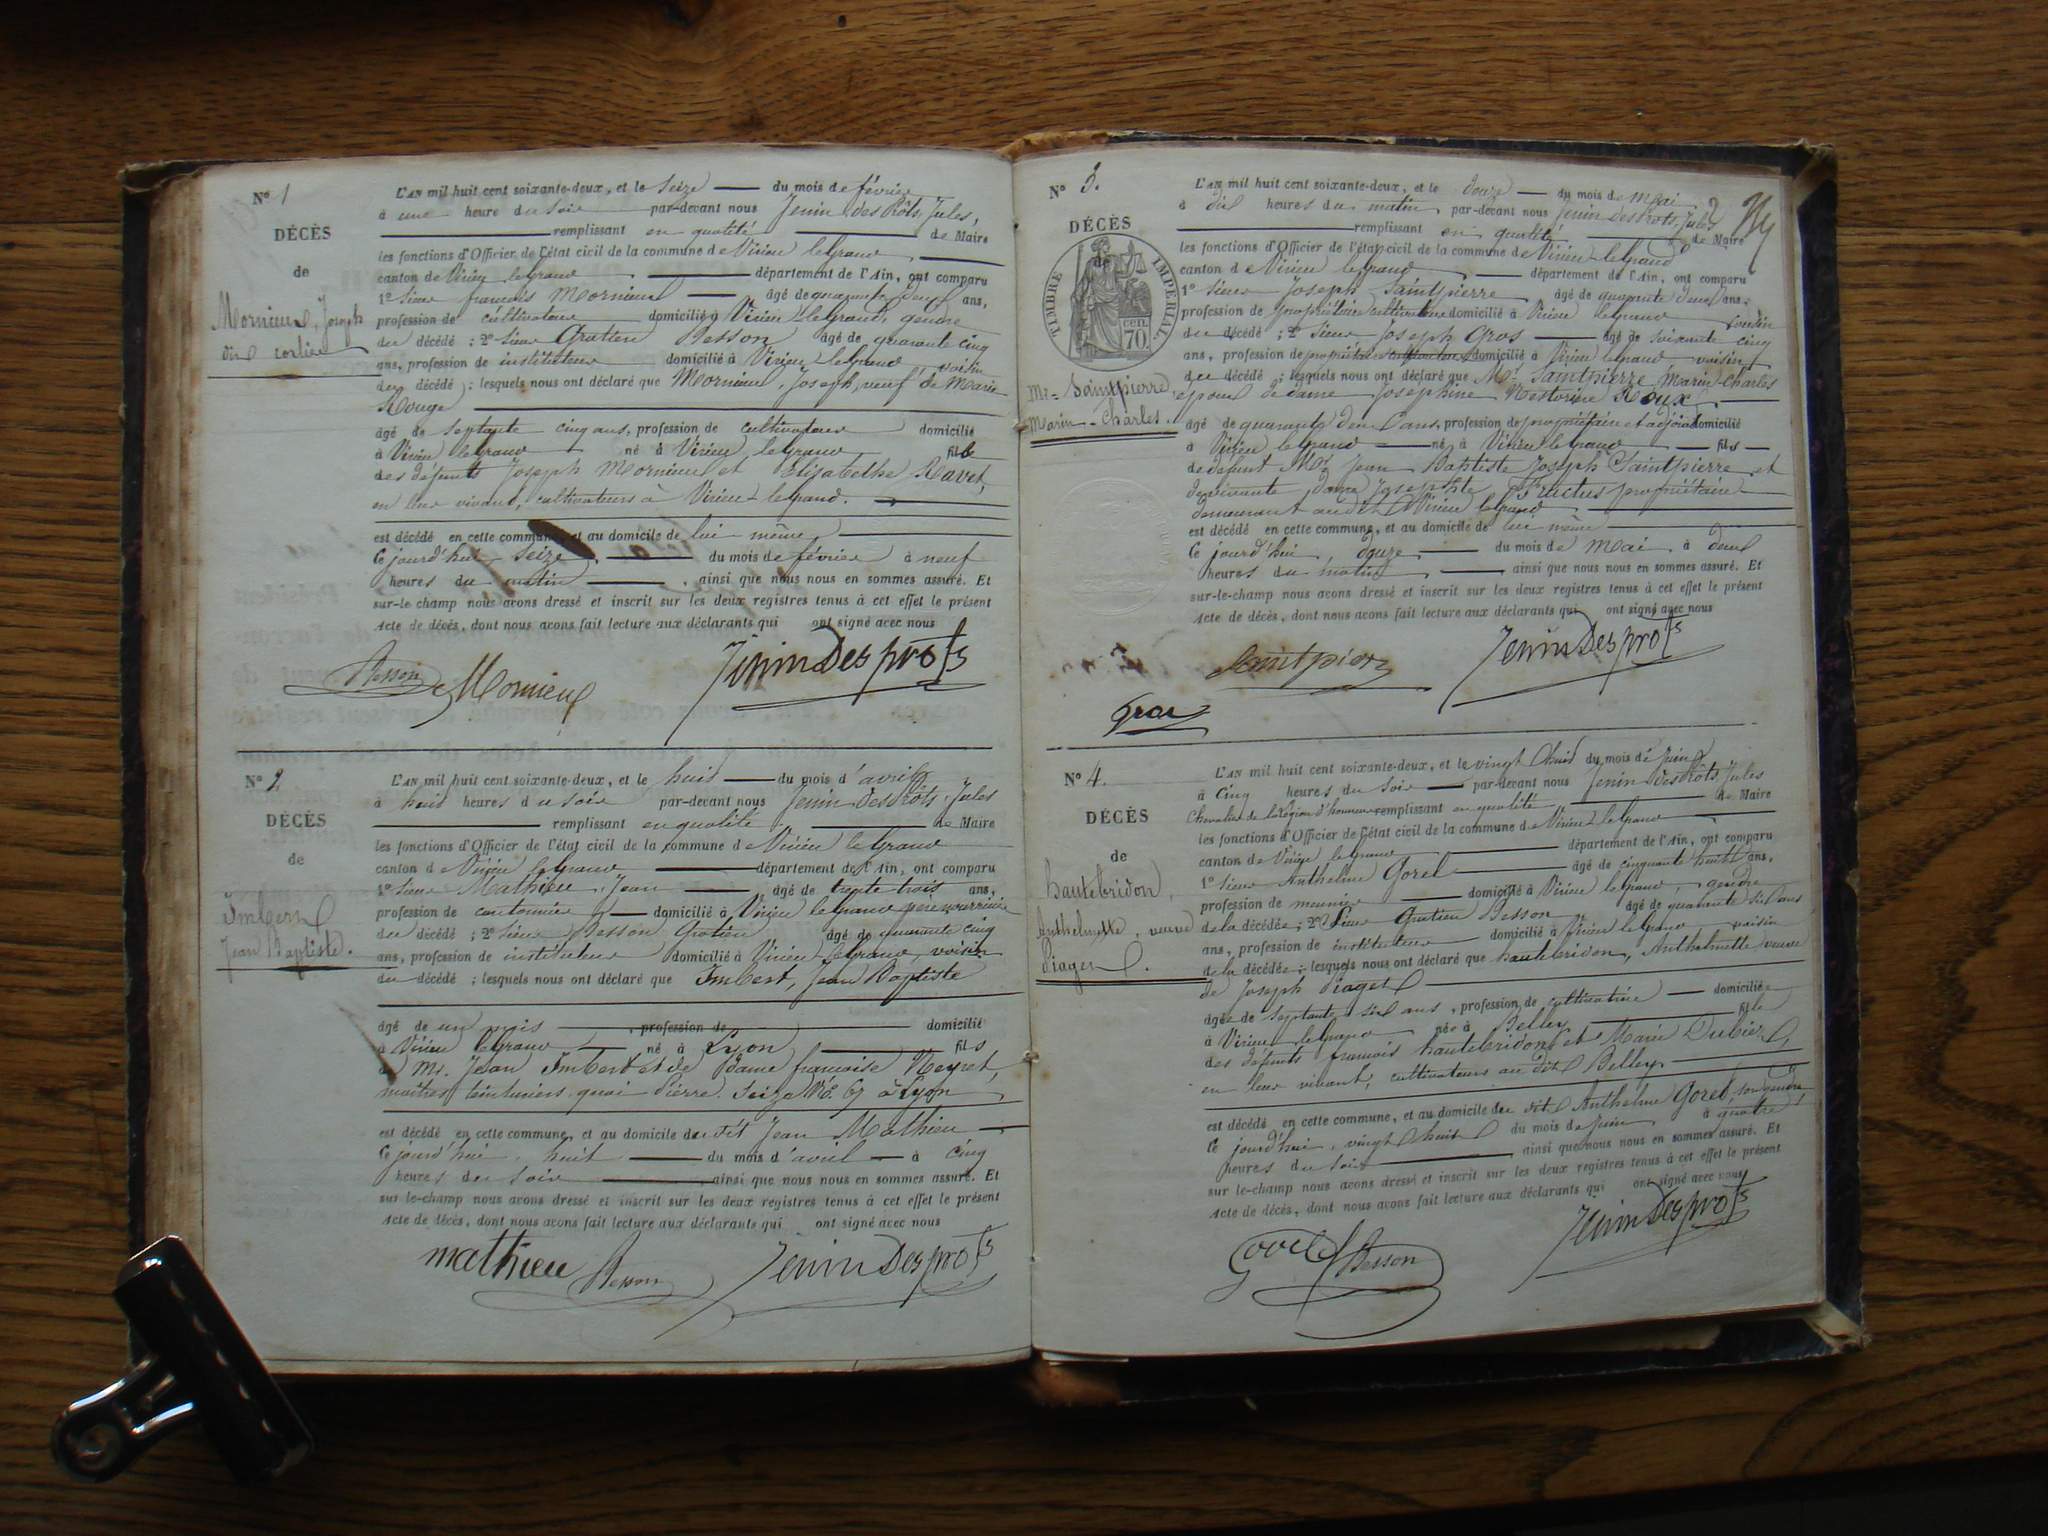 N° 1
DÉCÈS
de
Mornieux, Joseph
dit
L'AN mil huit cent soixante-deux, et le seize du mois de février
à une heure du soir par-devant nous Jenin Desprôts, Jules,
remplissant en qualité de Maire
les fonctions d'Officier de l'état civil de la commune de Virieu le grand
canton de Virieu le grand département de l'Ain, ont comparu
1° sieur françois Mornieux âgé de quarante deux ans,
profession de cultivateur domicilié à Virieu le grand, gendre
du décédé ; 2° sieur Gratien Besson âgé de quarante cinq
ans, profession de instituteur domicilié à Virieu le grand voisin
du décédé ; lesquels nous ont déclaré que Mornieux, Joseph, veuf de Marie
Rouge
âgé de septante cinq ans, profession de cultivateur domicilié
à Virieu le grand né à Virieu le grand fils
des défunts Joseph Mornieux et Elisabethe Ravet,
en leur vivant, cultivateurs à Virieu-le grand.
est décédé en cette commune, et au domicile de lui même
Ce jourd'hui seize du mois de février à neuf
heures du matin, ainsi que nous nous en sommes assuré. Et
sur-le champ nous avons dressé et inscrit sur les deux registres tenus à cet effet le présent
Acte de décès, dont nous avons fait lecture aux déclarants qui ont signé avec nous
Besson Mornieux Jenin Desprots
N° 2
DÉCÈS
de
Imbert
Jean Baptiste.
L'AN mil huit cent soixante-deux, et le huit du mois d'avril
à huit heures du soir par-devant nous Jenin Desprôts, Jules
remplissant en qualité de Maire
les fonctions d'Officier de l'état civil de la commune de Virieu le grand
canton de Virieu le grand département de l'Ain, ont comparu
1° sieur Mathieu, Jean âgé de trente trois ans,
profession de cantonnier domicilié à Virieu le grand père nourricier
du décédé ; 2° sieur Besson Gratien âgé de quarante cinq
ans, profession de instituteur domicilié à Virieu le grand, voisin
du décédé ; lesquels nous ont déclaré que Imbert, Jean Baptiste
âgé de un mois, profession de domicilié
à Virieu le grand né à Lyon fils
de Mr. Jean Imbert et de Dame françoise Neyret,
maîtres teinturiers quai Pierre Seize N° 67 à Lyon
est décédé en cette commune, et au domicile du dit Jean Mathieu
Ce jourd'hui, huit du mois d'avril à cinq
heures du soir ainsi que nous nous en sommes assuré. Et
sur le-champ nous avons dressé et inscrit sur les deux registres tenus à cet effet le présent
Acte de décès, dont nous avons fait lecture aux déclarants qui ont signé avec nous
mathieu Besson Jenin Desprots
N° 3.
DÉCÈS
de
TIMBRE IMPÉRIAL
70 CEN.
Mr = Saintpierre,
Marin-Charles.
L'AN mil huit cent soixante-deux, et le douze du mois de Mai
à dix heures du matin, par-devant nous Jenin Desprots, Jules
remplissant en qualité de Maire
les fonctions d'Officier de l'état civil de la commune de Virieu-le grand
canton de Virieu le grand département de l'Ain, ont comparu
1° sieur Joseph Saintpierre âgé de quarante deux ans,
profession de propriétaire cultivateur domicilié à Virieu le grand cousin
du décédé ; 2° sieur Joseph Gros âgé de soixante cinq
ans, profession de propriétaire cultivateur domicilié à Virieu le grand voisin
du décédé ; lesquels nous ont déclaré que Mr. Saintpierre Marin-Charles
époux de dame Joséphine Nestorine Roux
âgé de quarante deux ans, profession de propriétaire et adjoint domicilié
à Virieu le grand né à Virieu le grand fils
de défunt Mr Jean Baptiste Joseph Saintpierre et
de vivante dame Josephte Fructus propriétaire
demeurant au dit Virieu le grand
est décédé en cette commune, et au domicile de lui même
Ce jourd'hui, douze du mois de Mai à deux
heures du matin, ainsi que nous nous en sommes assuré. Et
sur-le champ nous avons dressé et inscrit sur les deux registres tenus à cet effet le présent
Acte de décès, dont nous avons fait lecture aux déclarants qui ont signé avec nous
Saintpierre Jenin Desprots
Gros
N° 4.
DÉCÈS
de
hautebridon,
Anthelmette, veuve
Piaget.
L'AN mil huit cent soixante-deux, et le vingt huit du mois de Juin
à cinq heures du soir par-devant nous Jenin Desprôts, Jules
Chevalier de la légion d'honneur remplissant en qualité de Maire
les fonctions d'Officier de l'état civil de la commune de Virieu le grand
canton de Virieu le grand département de l'Ain, ont comparu
1° sieur Anthelme Gorel âgé de cinquante huit ans,
profession de meunier domicilié à Virieu le grand, gendre
de la décédée ; 2° Sieur Gratien Besson âgé de quarante six ans
ans, profession de instituteur domicilié à Virieu le grand voisin
de la décédée ; lesquels nous ont déclaré que hautebridon, Anthelmette veuve
de Joseph Piaget
âgée de septante six ans, profession de cultivatrice domiciliée
à Virieu le grand née à Belley fille
des défunts françois hautebridon et Marie Dubier,
en leur vivant, cultivateurs au dit Belley
est décédé en cette commune, et au domicile du dit Anthelme Gorel, son gendre
Ce jourd'hui, vingt huit du mois de juin, à quatre
heures du soir ainsi que nous nous en sommes assuré. Et
sur le-champ nous avons dressé et inscrit sur les deux registres tenus à cet effet le présent
Acte de décès, dont nous avons fait lecture aux déclarants qui ont signé avec nous
Gorel Besson Jenin Desprots